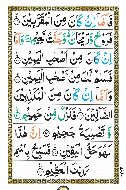 فَأَمَّآ إِن كَانَ مِنَ ٱلْمُقَرَّبِينَ
فَرَوْحٌ وَرَيْحَانٌ وَجَنَّتُ نَعِيمٍ وَأَمَّآ
إِن كَانَ مِنْ أَصْحَٰبِ ٱلْيَمِينِ
فَسَلَٰمٌ لَّكَ مِنْ أَصْحَٰبِ ٱلْيَمِينِ
وَأَمَّآ إِن كَانَ مِنَ ٱلْمُكَذِّبِينَ
ٱلضَّآلِّينَ فَنُزُلٌ مِّنْ حَمِيمٍ
وَتَصْلِيَةُ جَحِيمٍ إِنَّ هَٰذَا
لَهُوَ حَقُّ ٱلْيَقِينِ فَسَبِّحْ بِٱسْمِ
رَبِّكَ ٱلْعَظِيمِ